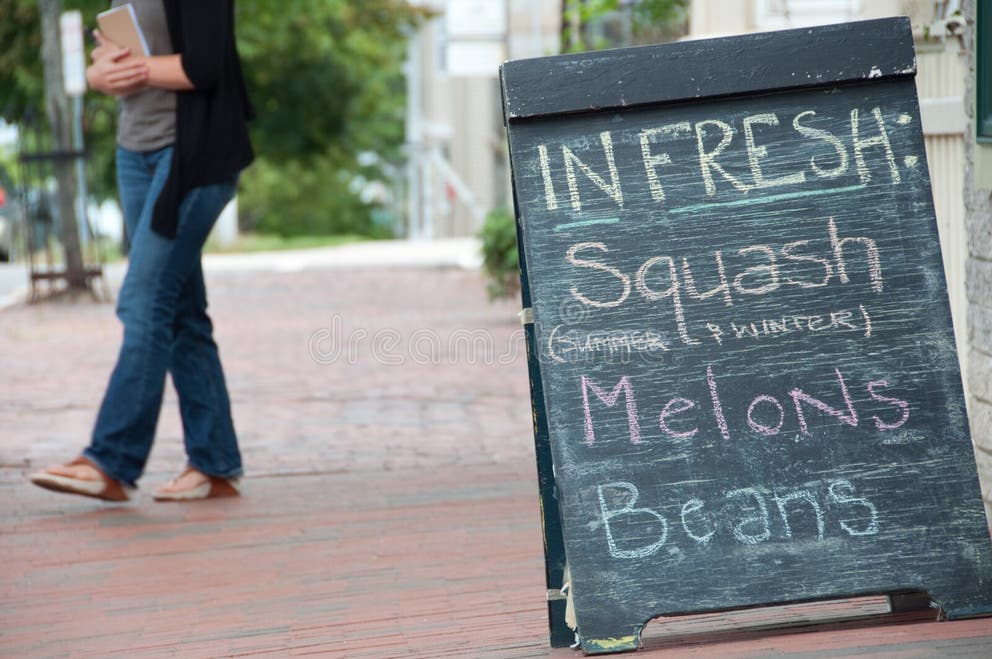 IN FRESH:
Squash
(SUMMER & WINTER)
Melons
Beans
dreamstime